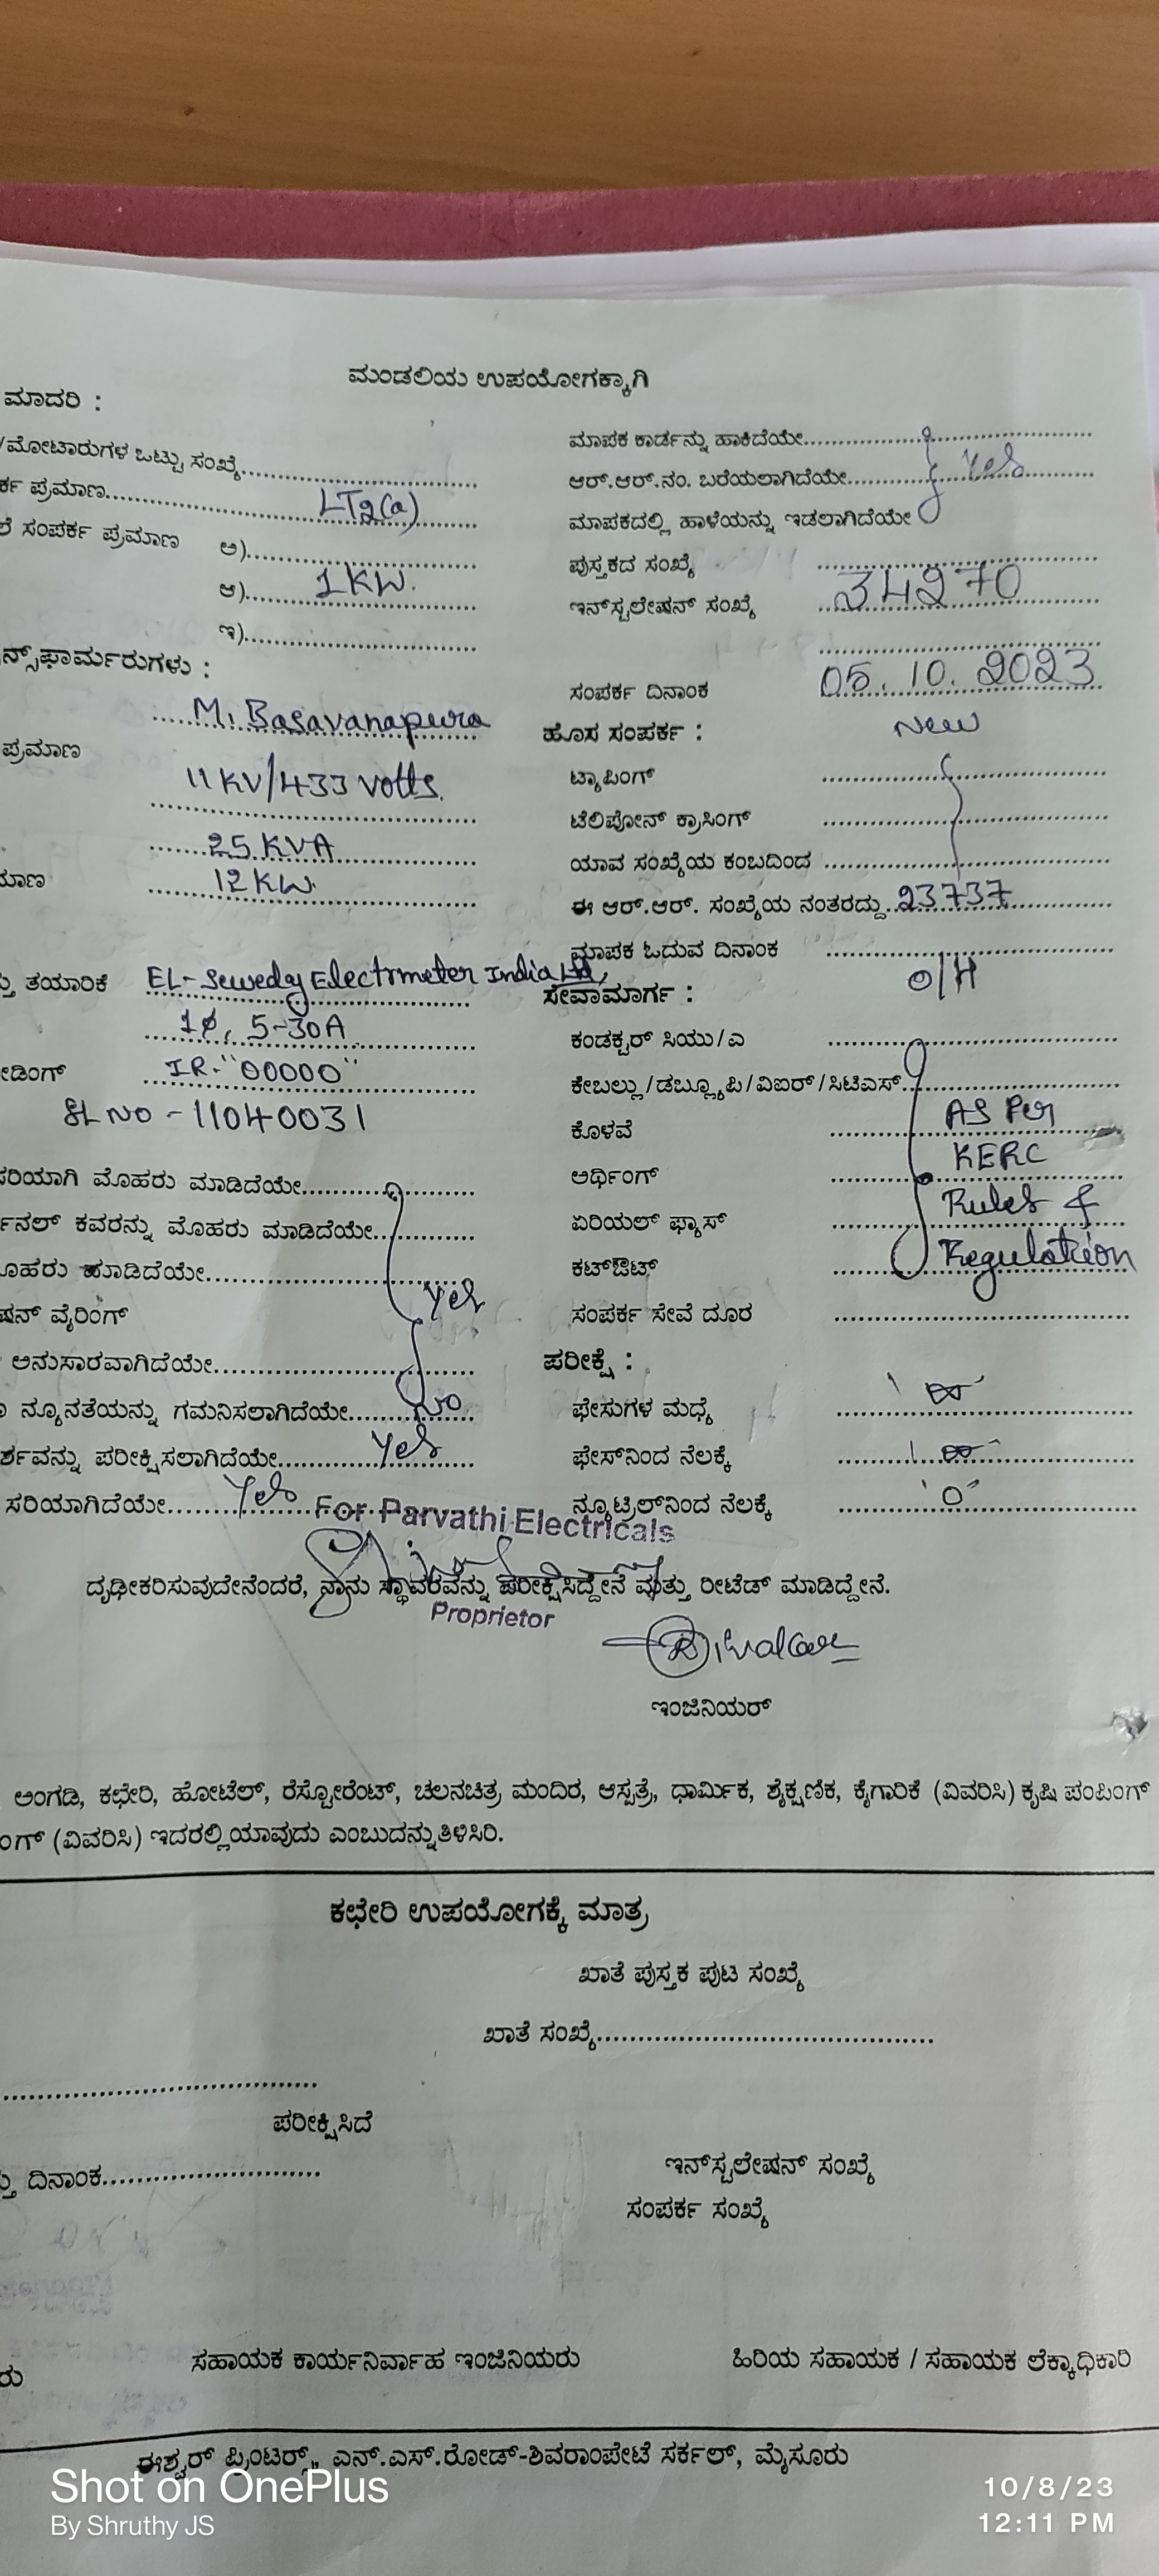 ಮಂಡಲಿಯ ಉಪಯೋಗಕ್ಕಾಗಿ
ಮಾದರಿ :
/ಮೋಟಾರುಗಳ ಒಟ್ಟು ಸಂಖ್ಯೆ
ಪ್ರಮಾಣ LT2(a)
ಸಂಪರ್ಕ ಪ್ರಮಾಣ ಅ)
ಆ) 1KW.
ಇ)
ನ್ಸ್‌ಫಾರ್ಮರುಗಳು :
M. Basavanapura
ಪ್ರಮಾಣ
11KV/433 volts.
25 KVA
ಮಾಣ 12KW.
ತಯಾರಿಕೆ EL-Sewedy Electrmeter India Ltd,
1ø, 5-30A
ಡಿಂಗ್ IR-"00000"
SL NO - 11040031
ಸರಿಯಾಗಿ ಮೊಹರು ಮಾಡಿದೆಯೇ
ನಲ್ ಕವರನ್ನು ಮೊಹರು ಮಾಡಿದೆಯೇ
ಹರು ಮಾಡಿದೆಯೇ
Yes
ಷನ್ ವೈರಿಂಗ್
ಅನುಸಾರವಾಗಿದೆಯೇ
ನ್ಯೂನತೆಯನ್ನು ಗಮನಿಸಲಾಗಿದೆಯೇ No
ರ್ಶವನ್ನು ಪರೀಕ್ಷಿಸಲಾಗಿದೆಯೇ Yes
ಸರಿಯಾಗಿದೆಯೇ Yes
ಮಾಪಕ ಕಾರ್ಡನ್ನು ಹಾಕಿದೆಯೇ
ಆರ್.ಆರ್.ನಂ. ಬರೆಯಲಾಗಿದೆಯೇ Yes
ಮಾಪಕದಲ್ಲಿ ಹಾಳೆಯನ್ನು ಇಡಲಾಗಿದೆಯೇ
ಪುಸ್ತಕದ ಸಂಖ್ಯೆ
ಇನ್‌ಸ್ಟಲೇಷನ್ ಸಂಖ್ಯೆ 34270
ಸಂಪರ್ಕ ದಿನಾಂಕ 05.10.2023
ಹೊಸ ಸಂಪರ್ಕ : New
ಟ್ಯಾಪಿಂಗ್
ಟೆಲಿಪೋನ್ ಕ್ರಾಸಿಂಗ್
ಯಾವ ಸಂಖ್ಯೆಯ ಕಂಬದಿಂದ
ಈ ಆರ್.ಆರ್. ಸಂಖ್ಯೆಯ ನಂತರದ್ದು 23737
ಮಾಪಕ ಓದುವ ದಿನಾಂಕ
ಸೇವಾಮಾರ್ಗ : O/H
ಕಂಡಕ್ಟರ್ ಸಿಯು/ಎ
ಕೇಬಲ್ಲು/ಡಬ್ಲ್ಯೂಪಿ/ವಿಐರ್/ಸಿಟಿಎಸ್
ಕೊಳವೆ AS Per
ಅರ್ಥಿಂಗ್ KERC
ಏರಿಯಲ್ ಫ್ಯಾಸ್ Rules &
ಕಟ್‌ಔಟ್ Regulation
ಸಂಪರ್ಕ ಸೇವೆ ದೂರ
ಪರೀಕ್ಷೆ :
ಫೇಸುಗಳ ಮಧ್ಯೆ ∞
ಫೇಸ್‌ನಿಂದ ನೆಲಕ್ಕೆ ∞
ನ್ಯೂಟ್ರಿಲ್‌ನಿಂದ ನೆಲಕ್ಕೆ '0'
For Parvathi Electricals
ದೃಢೀಕರಿಸುವುದೇನೆಂದರೆ, ನಾನು ಸ್ಥಾವರವನ್ನು ಪರೀಕ್ಷಿಸಿದ್ದೇನೆ ಮತ್ತು ರೀಟೆಡ್ ಮಾಡಿದ್ದೇನೆ.
Proprietor
ಇಂಜಿನಿಯರ್
ಅಂಗಡಿ, ಕಛೇರಿ, ಹೋಟೆಲ್, ರೆಸ್ಟೋರೆಂಟ್, ಚಲನಚಿತ್ರ ಮಂದಿರ, ಆಸ್ಪತ್ರೆ, ಧಾರ್ಮಿಕ, ಶೈಕ್ಷಣಿಕ, ಕೈಗಾರಿಕೆ (ವಿವರಿಸಿ) ಕೃಷಿ ಪಂಪಿಂಗ್
ಂಗ್ (ವಿವರಿಸಿ) ಇದರಲ್ಲಿ ಯಾವುದು ಎಂಬುದನ್ನು ತಿಳಿಸಿರಿ.
ಕಛೇರಿ ಉಪಯೋಗಕ್ಕೆ ಮಾತ್ರ
ಖಾತೆ ಪುಸ್ತಕ ಪುಟ ಸಂಖ್ಯೆ
ಖಾತೆ ಸಂಖ್ಯೆ
ಪರೀಕ್ಷಿಸಿದೆ
ದಿನಾಂಕ
ಇನ್‌ಸ್ಟಲೇಷನ್ ಸಂಖ್ಯೆ
ಸಂಪರ್ಕ ಸಂಖ್ಯೆ
ರು ಸಹಾಯಕ ಕಾರ್ಯನಿರ್ವಾಹ ಇಂಜಿನಿಯರು ಹಿರಿಯ ಸಹಾಯಕ / ಸಹಾಯಕ ಲೆಕ್ಕಾಧಿಕಾರಿ
ಈಶ್ವರ್ ಪ್ರಿಂಟರ್ಸ್, ಎನ್.ಎಸ್.ರೋಡ್-ಶಿವರಾಂಪೇಟೆ ಸರ್ಕಲ್, ಮೈಸೂರು
Shot on OnePlus
By Shruthy JS
10/8/23
12:11 PM